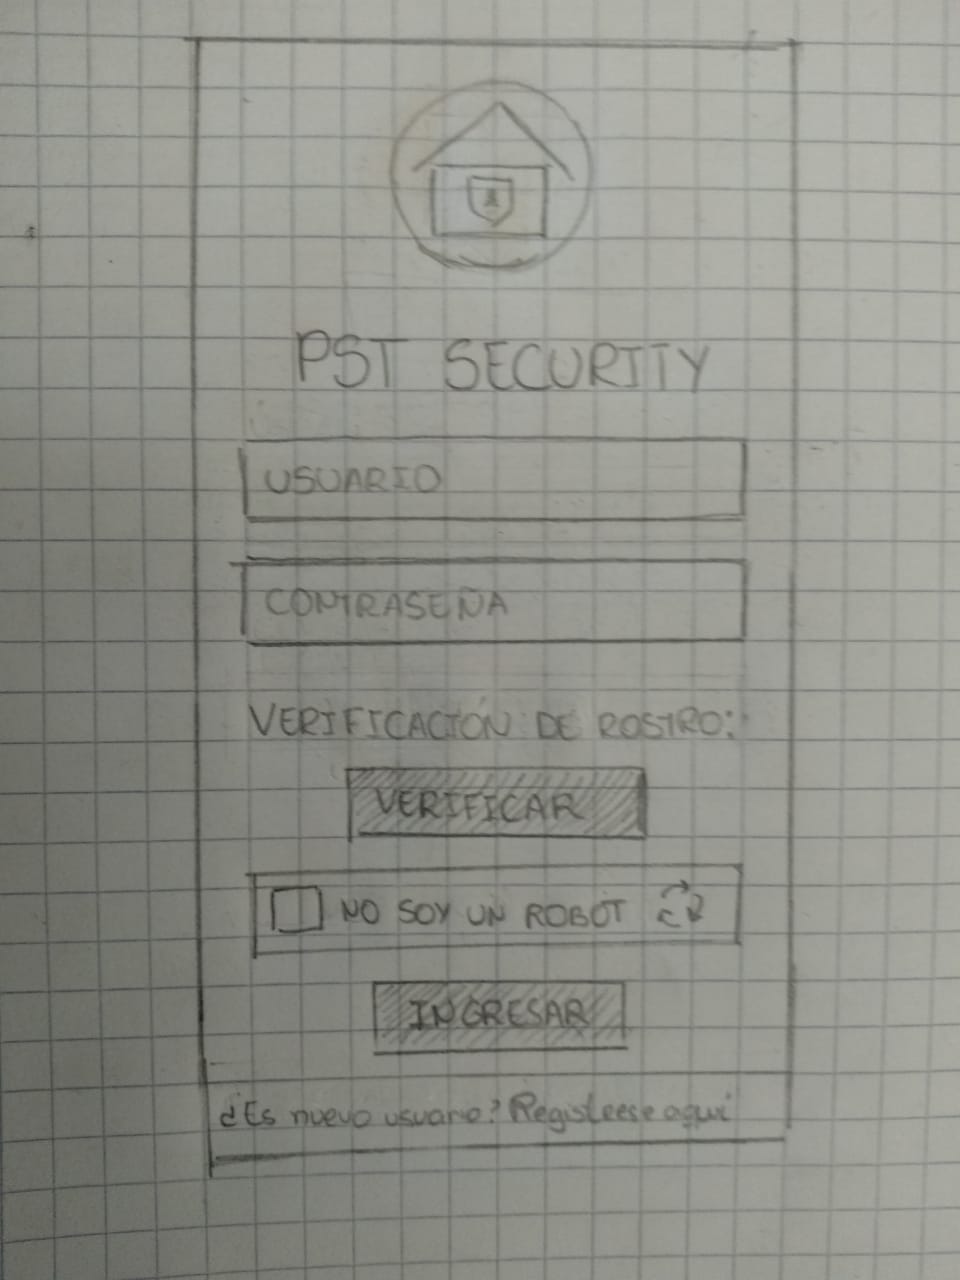 PST SECURITY
USUARIO
CONTRASEÑA
VERIFICACIÓN DE ROSTRO:
VERIFICAR
NO SOY UN ROBOT
INGRESAR
¿Es nuevo usuario? Registreese aquí